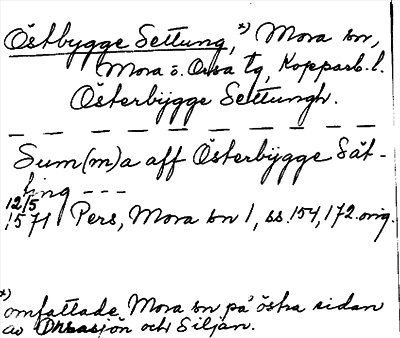 Östbygge Settung, *) Mora sn,
Mora o. Orsa tg, Kopparb. l.
Österbygge Settungh.
Sum(m)a aff Österbygge Sät-
ting ---
12/5
1571 Pers, Mora sn 1, ss. 154, 172. orig.
*)
omfattade Mora sn på östra sidan
av Orsasjön och Siljan.